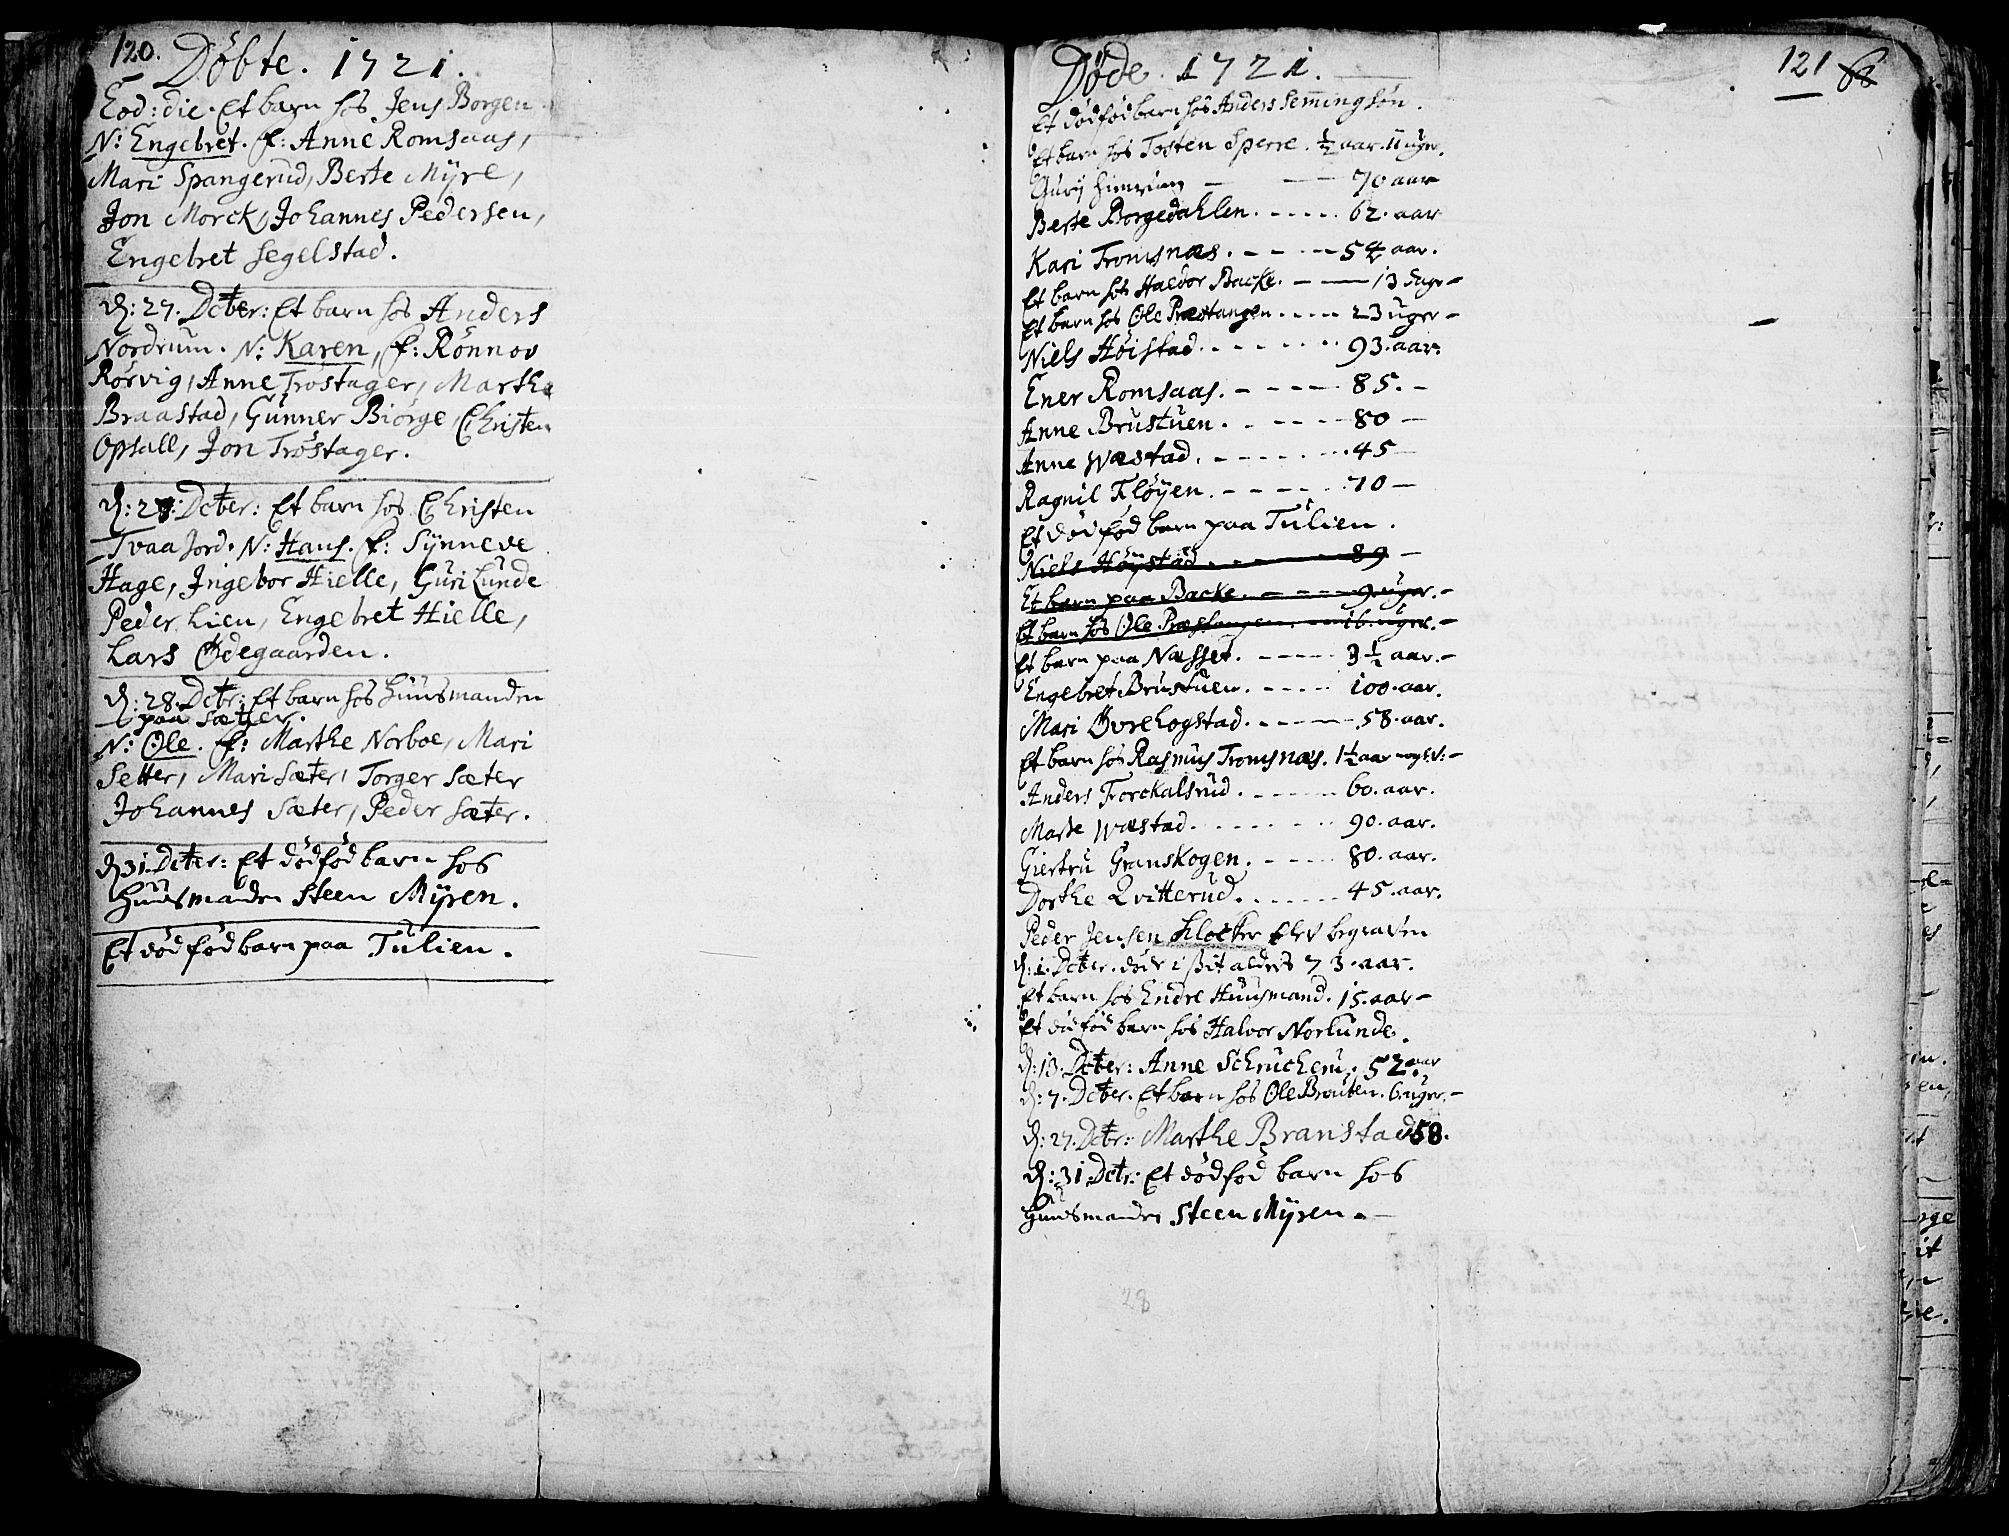 120.
Döbte. 1721.
Eod: die. Et barn hos Jens Borgen
N: Engebret. F: Anne Romsaas,
Mari Spangerud, Berte Myre,
Jon Morck, Johannes Pedersen,
Engebret Segelstad.
d: 27. Dcbr: Et barn hos Anders
Nordrum. N: Karen, F: Rönnov
Rörvig, Anne Trostager, Marthe
Braastad, Gunner Biörge, Christen
Opsall, Jon Tröstager.
d: 27: Dcbr: Et barn hos Christen
Tvaa Jord. N: Hans. F: Synneve
Hage, Ingebor Hielle, Guri Lunde
Peder Lien, Engebret Hielle,
Lars Ödegaarden.
d: 28. Dcbr: Et barn hos Huusmanden
paa Sætter.
N: Ole. F: Marthe Norboe, Mari
Setter, Mari Sæter, Torger Sæter
Johannes Sæter, Peder Sæter.
d 31. Dcbr: Et dödföd barn hos
Huusmanden Steen Myren.
Et död föd barn paa Tulien.
121 68
Döde. 1721.
Et dödföd barn hos Anders Semingsön.
Et barn hos Tosten Sperre. ½ aar. 11 uger.
Gury - - 70 aar
Berte Borgedahlen. - - - - 62. aar
Kari Tromsnæs. - - - 54 aar.
Et barn hos Haldor Backe. - - 13 uger -
Et barn hos Ole Præstangen - - - - 23 uger -
Niels Höistad. - - - - - 93. aar.
Ener Romsaas. - - - - 85. -
Anne Brustuen. - - - - 80 -
Anne Wæstad. - - - - - 45 -
Ragnil Flöyen. - - - - - 70 -
Et död föd barn paa Tulien.
Niels Höystad. - - - 89 -
Et barn paa Backe. - - - 9. uger. -
Et barn hos Ole Præstangen. - - 16. uger. -
Et barn paa Næsset. - - - - 3 ½ aar. -
Engebret Brustuen. - - - - 100. aar.
Mari Övrehogstad. - - - - 58. aar.
Et barn hos Rasmus Tromsnæs. 1½ aar -
Anders Forckalsrud. - - - - 60. aar.
Marte Wæstad. - - - - - 90. aar.
Giertru Granskogen. - - - - 80. aar.
Dorthe Qvitterud. - - - - 45. aar.
Peder Jensen Klocker blev begraven
d: 1. Dcbr. döde i sit alders 73. aar.
Et barn hos Endre Huusmand. 15. aar -
Et död föd barn hos Halvor Norlunde.
d: 13. Dcbr: Anne 52. aar
d: 7. Dcbr. Et barn hos Ole Brouten. 6. uger. -
d: 27. Dcbr: Marthe Branstad 58.
d: 31. Dcbr: Et dödföd barn hos
Huusmanden Steen Myren. -
28